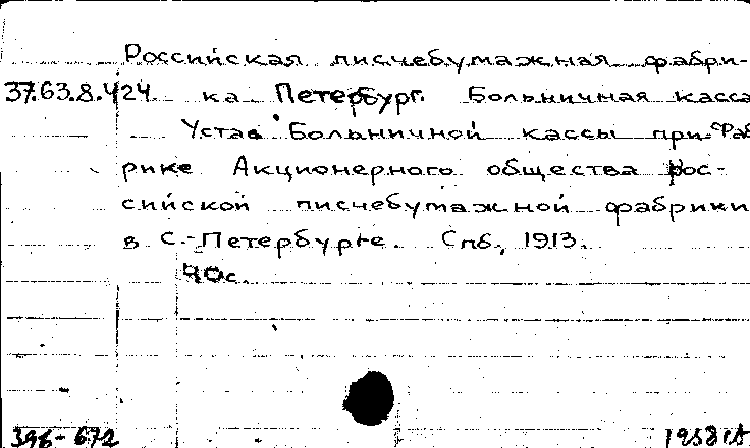 Российская писчебумажная фабри-
37.63.8.424 ка Петербург. Больничная касса
Устав Больничной кассы при Фаб
рике Акционерного общества рос-
сийской писчебумажной фабрики
в С.-Петербурге. Спб, 1913.
40с.
398-672